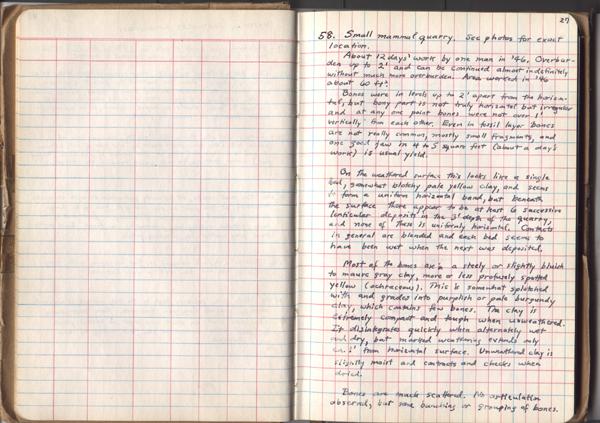 27
58. Small mammal quarry. See photos for exact
location.
About 12 days' work by one man in '46. Overbur-
den up to 2' and can be continued almost indefinitely
without much more overburden. Area worked in '46
about 60 ft².
Bones were in levels up to 2' apart from the horizon-
tal, but bony part is not truly horizontal but irregular
and at any one point bones were not over 1'
vertically from each other. Even in fossil layer bones
are not really common, mostly small fragments, and
one good jaw in 4 to 5 square feet (about a day's
work) is usual yield.
On the weathered surface this looks like a single
bed, somewhat blotchy pale yellow clay, and seems
to form a uniform horizontal band, but beneath
the surface there appear to be at least 6 successive
lenticular deposits in the 3' depth of the quarry,
and none of these is uniformly horizontal. Contacts
in general are blended and each bed seems to
have been wet when the next was deposited.
Most of the bones are in a steely or slightly bluish
to mauve gray clay, more or less profusely spotted
yellow (ochraceous). This is somewhat splotched
with and grades into purplish or pale burgundy
clay, which contains few bones. The clay is
extremely compact and tough when unweathered.
It disintegrates quickly when alternately wet
and dry, but marked weathering extends only
ca. 1' from horizontal surface. Unweathered clay is
slightly moist and contracts and checks when
dried.
Bones are much scattered. No articulation
observed, but some bunching or grouping of bones.